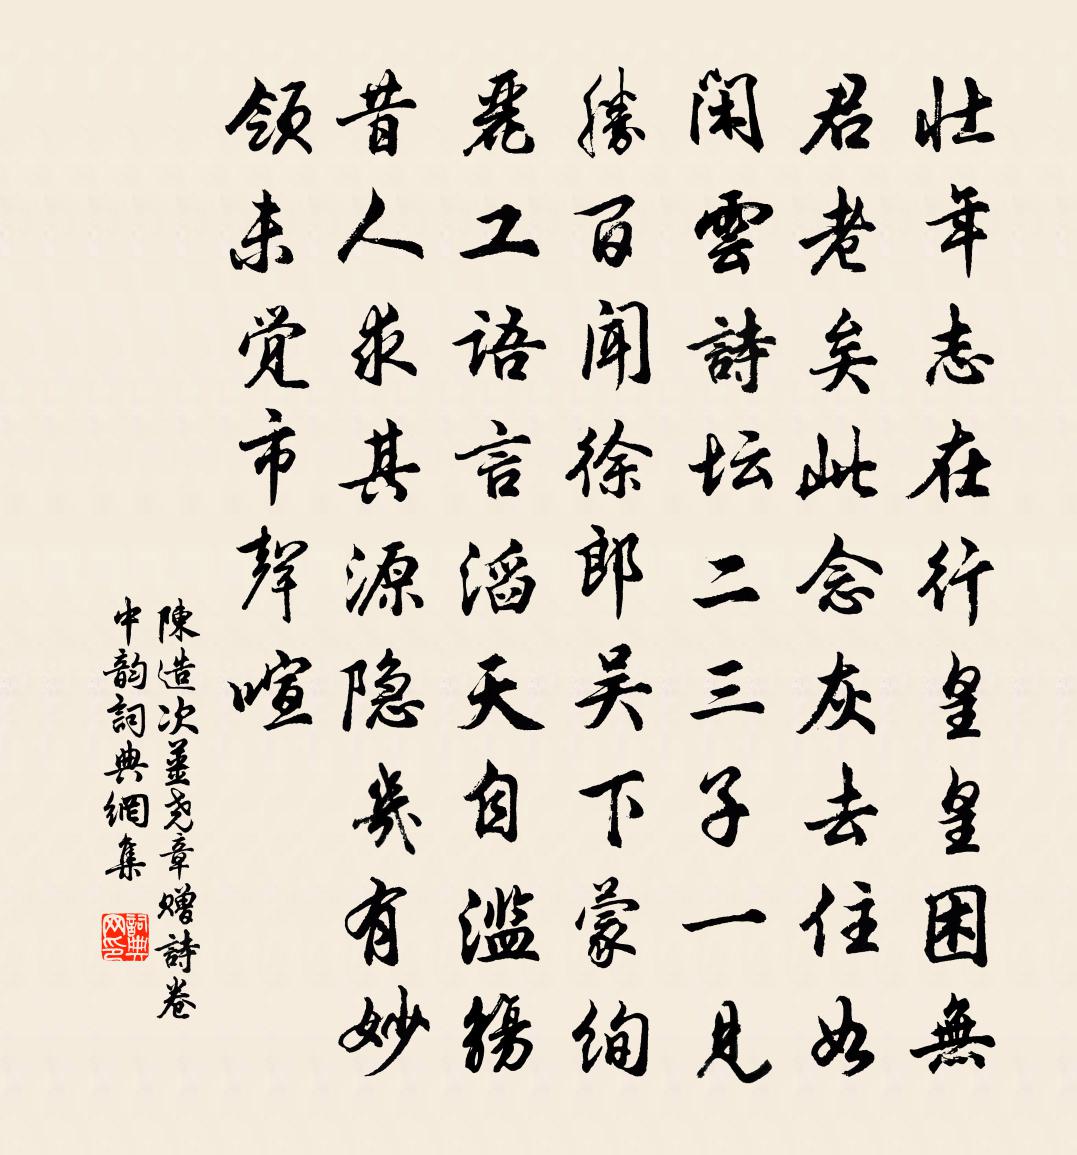 壮年志在行皇皇困無
君老矣此念灰去住如
閑雲詩坛二三子一見
勝百聞徐郎吴下蒙绚
麗工語言滔天自滥觴
昔人求其源隐幾有妙
领未觉市聲喧
陳造次薑尧章赠詩卷
中韵詞典網集
詞典网印